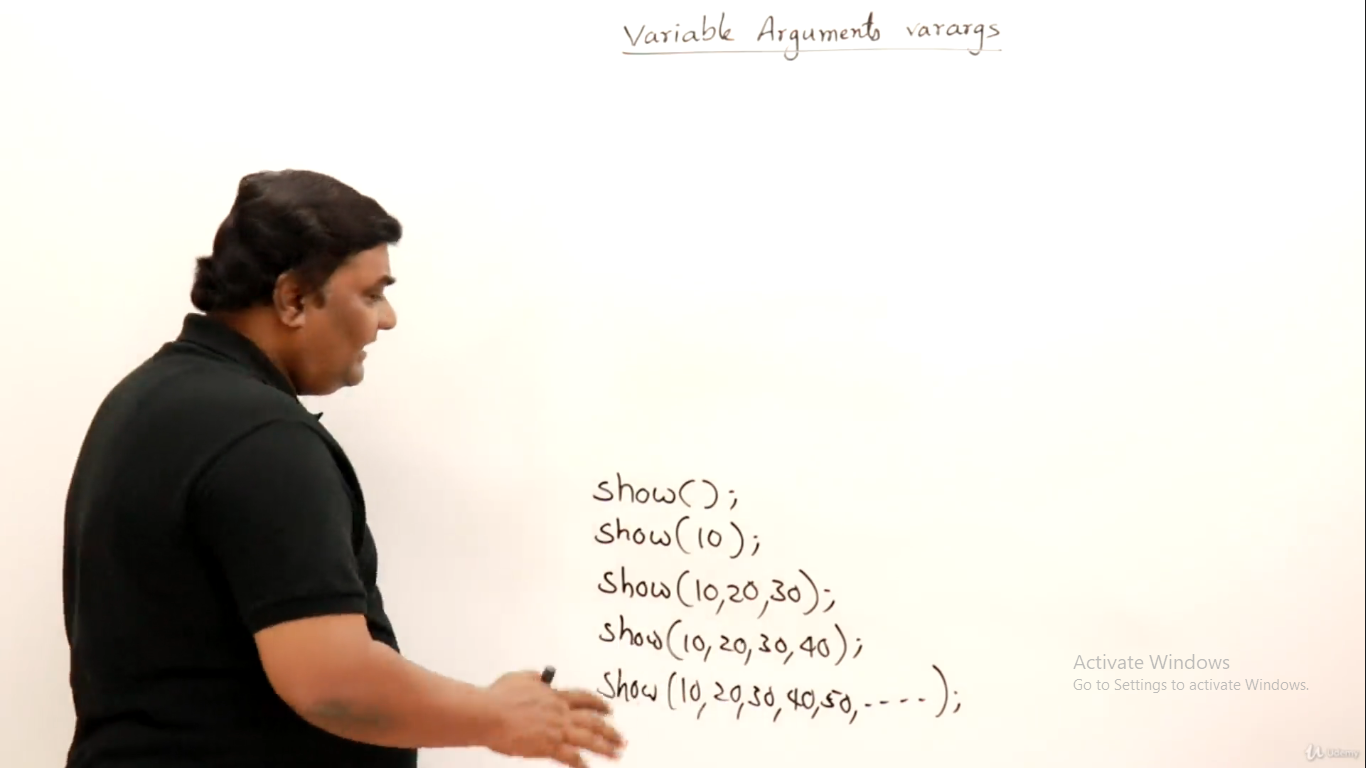 Variable Arguments varargs
show();
show(10);
show(10,20,30);
show(10,20,30,40);
show(10,20,30,40,50,-----);
Activate Windows
Go to Settings to activate Windows.
Udemy